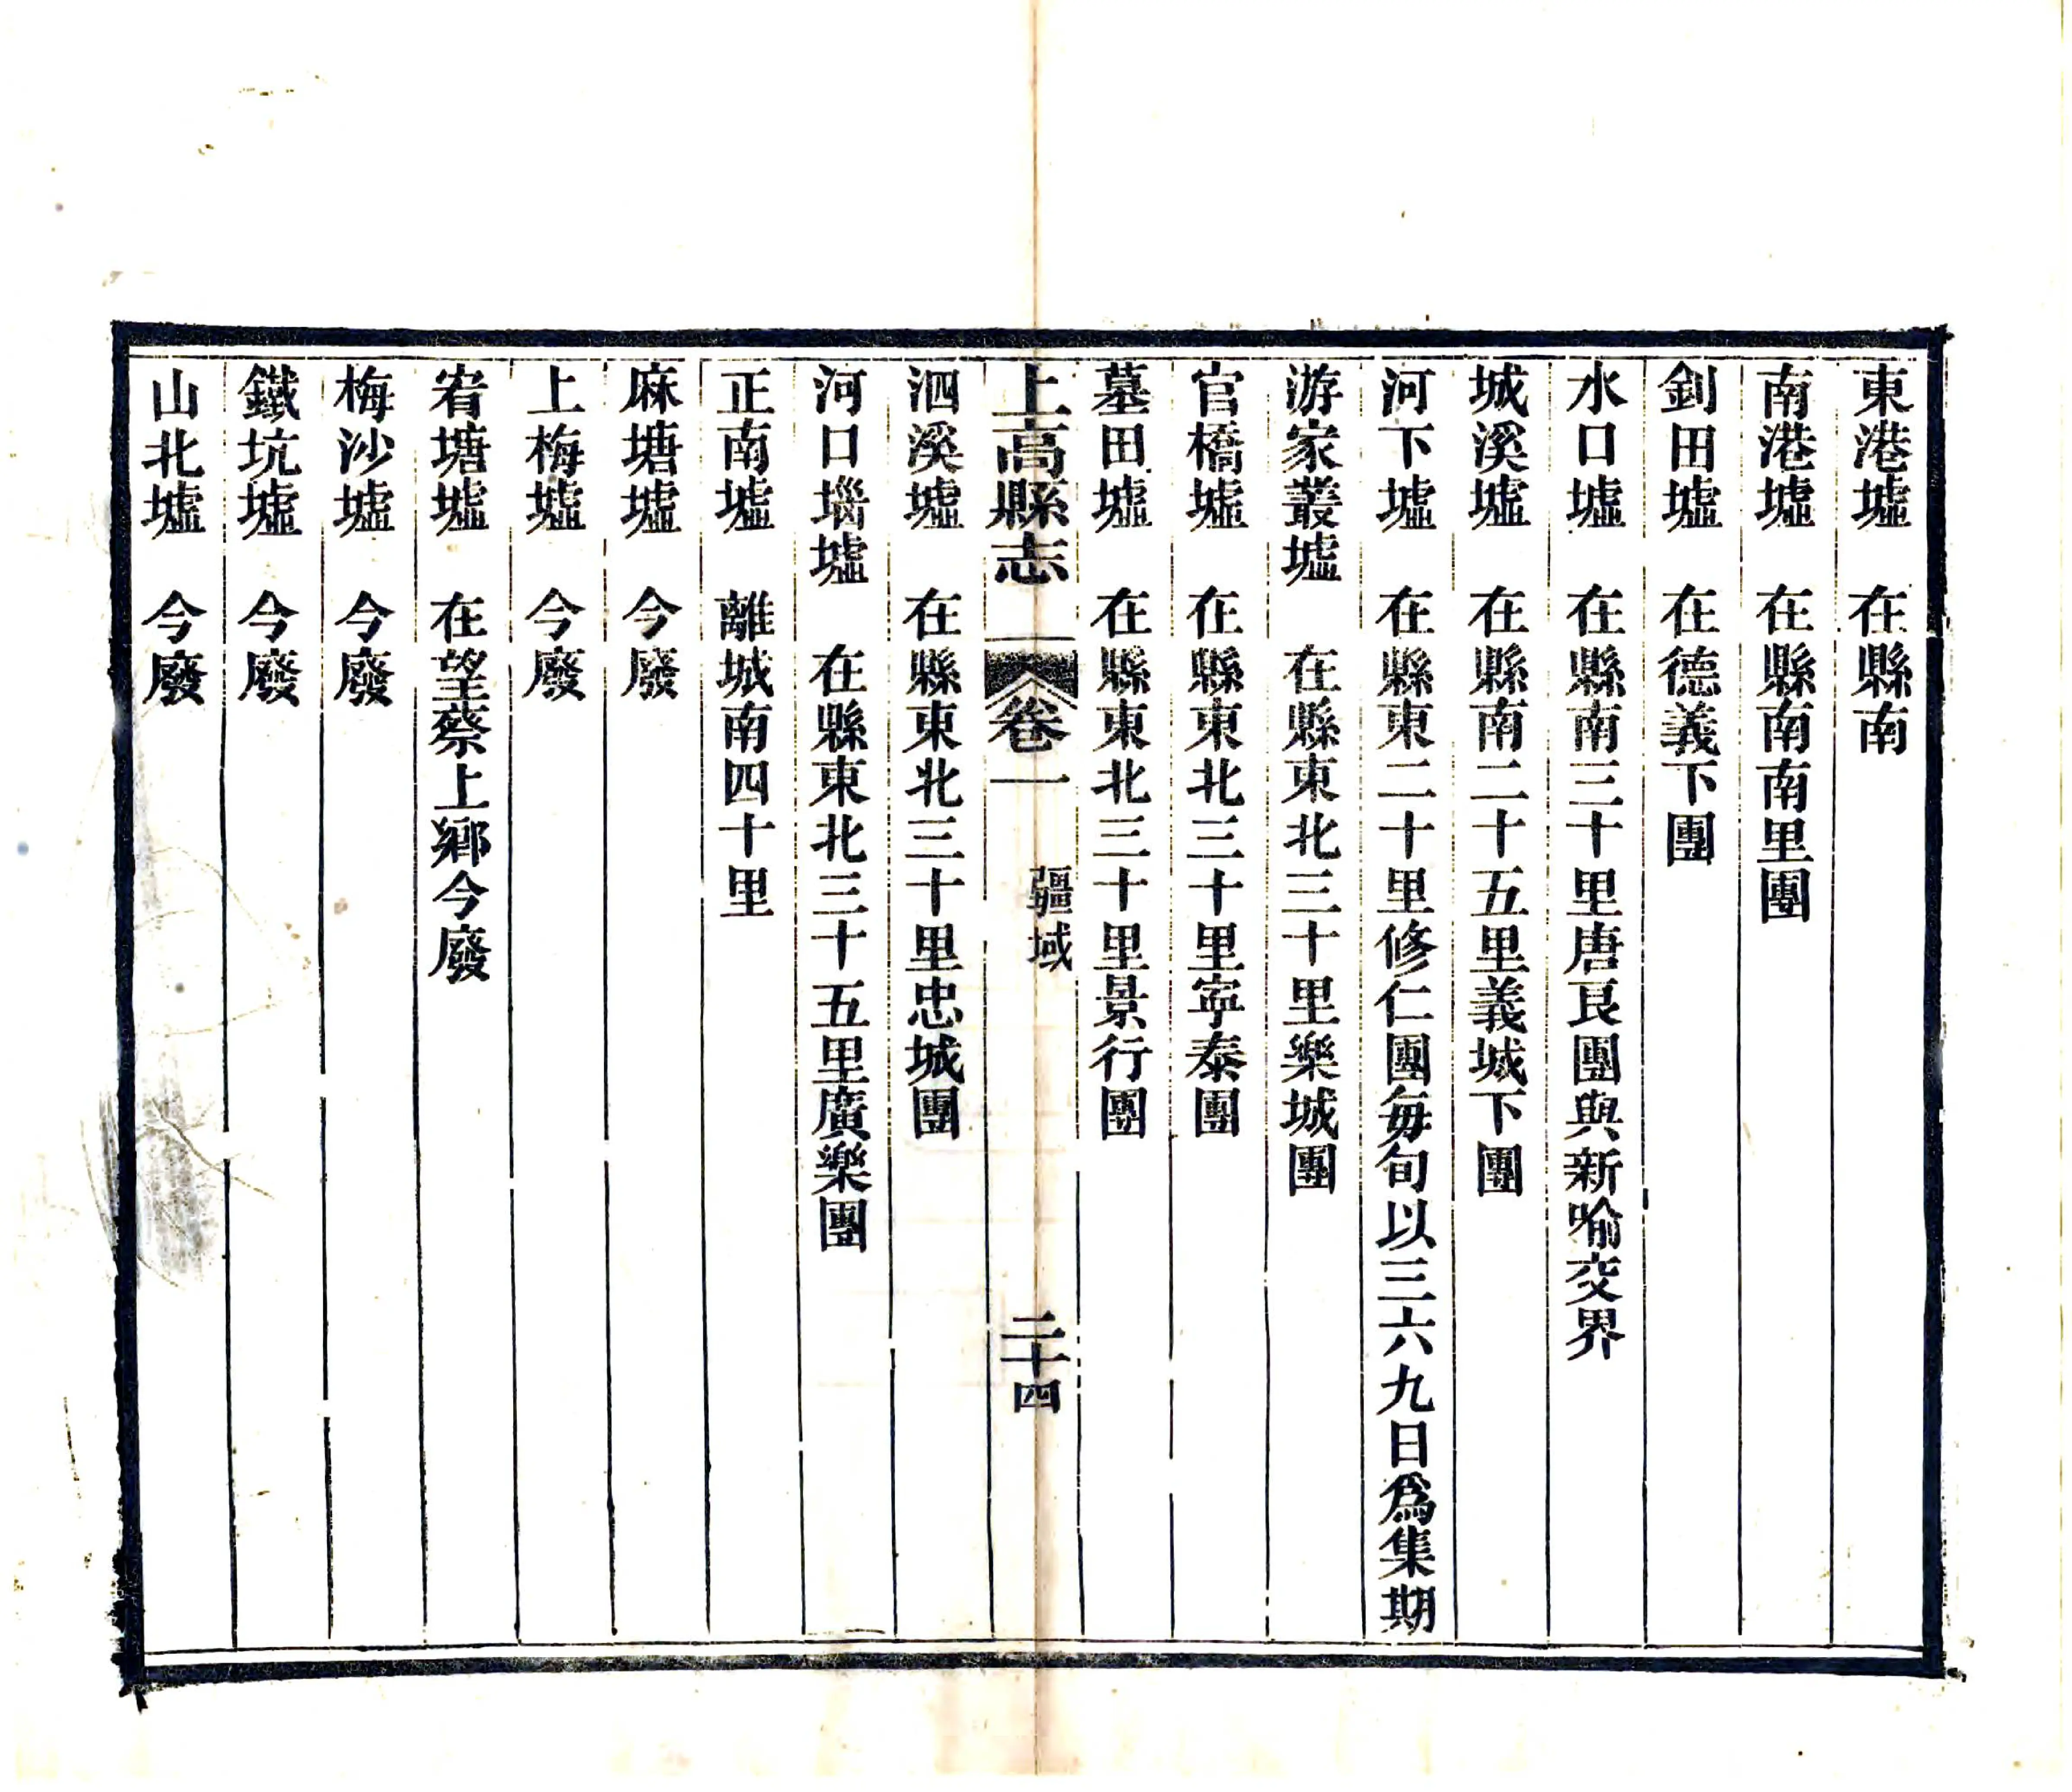 東港墟　在縣南
南港墟　在縣南南里團
釗田墟　在德義下團
水口墟　在縣南三十里唐艮團與新喻交界
城溪墟　在縣南二十五里義城下團
河下墟　在縣東二十里修仁團每旬以三六九日為集期
游家叢墟　在縣東北三十里樂城團
官橋墟　在縣東北三十里寧泰團
墓田墟　在縣東北三十里景行團
上高縣志　卷一　疆域　二十四
泗溪墟　在縣東北三十里忠城團
河口堖墟　在縣東北三十五里廣樂團
正南墟　離城南四十里
麻塘墟　今廢
上梅墟　今廢
宥塘墟　在望蔡上鄉今廢
梅沙墟　今廢
鐵坑墟　今廢
山北墟　今廢